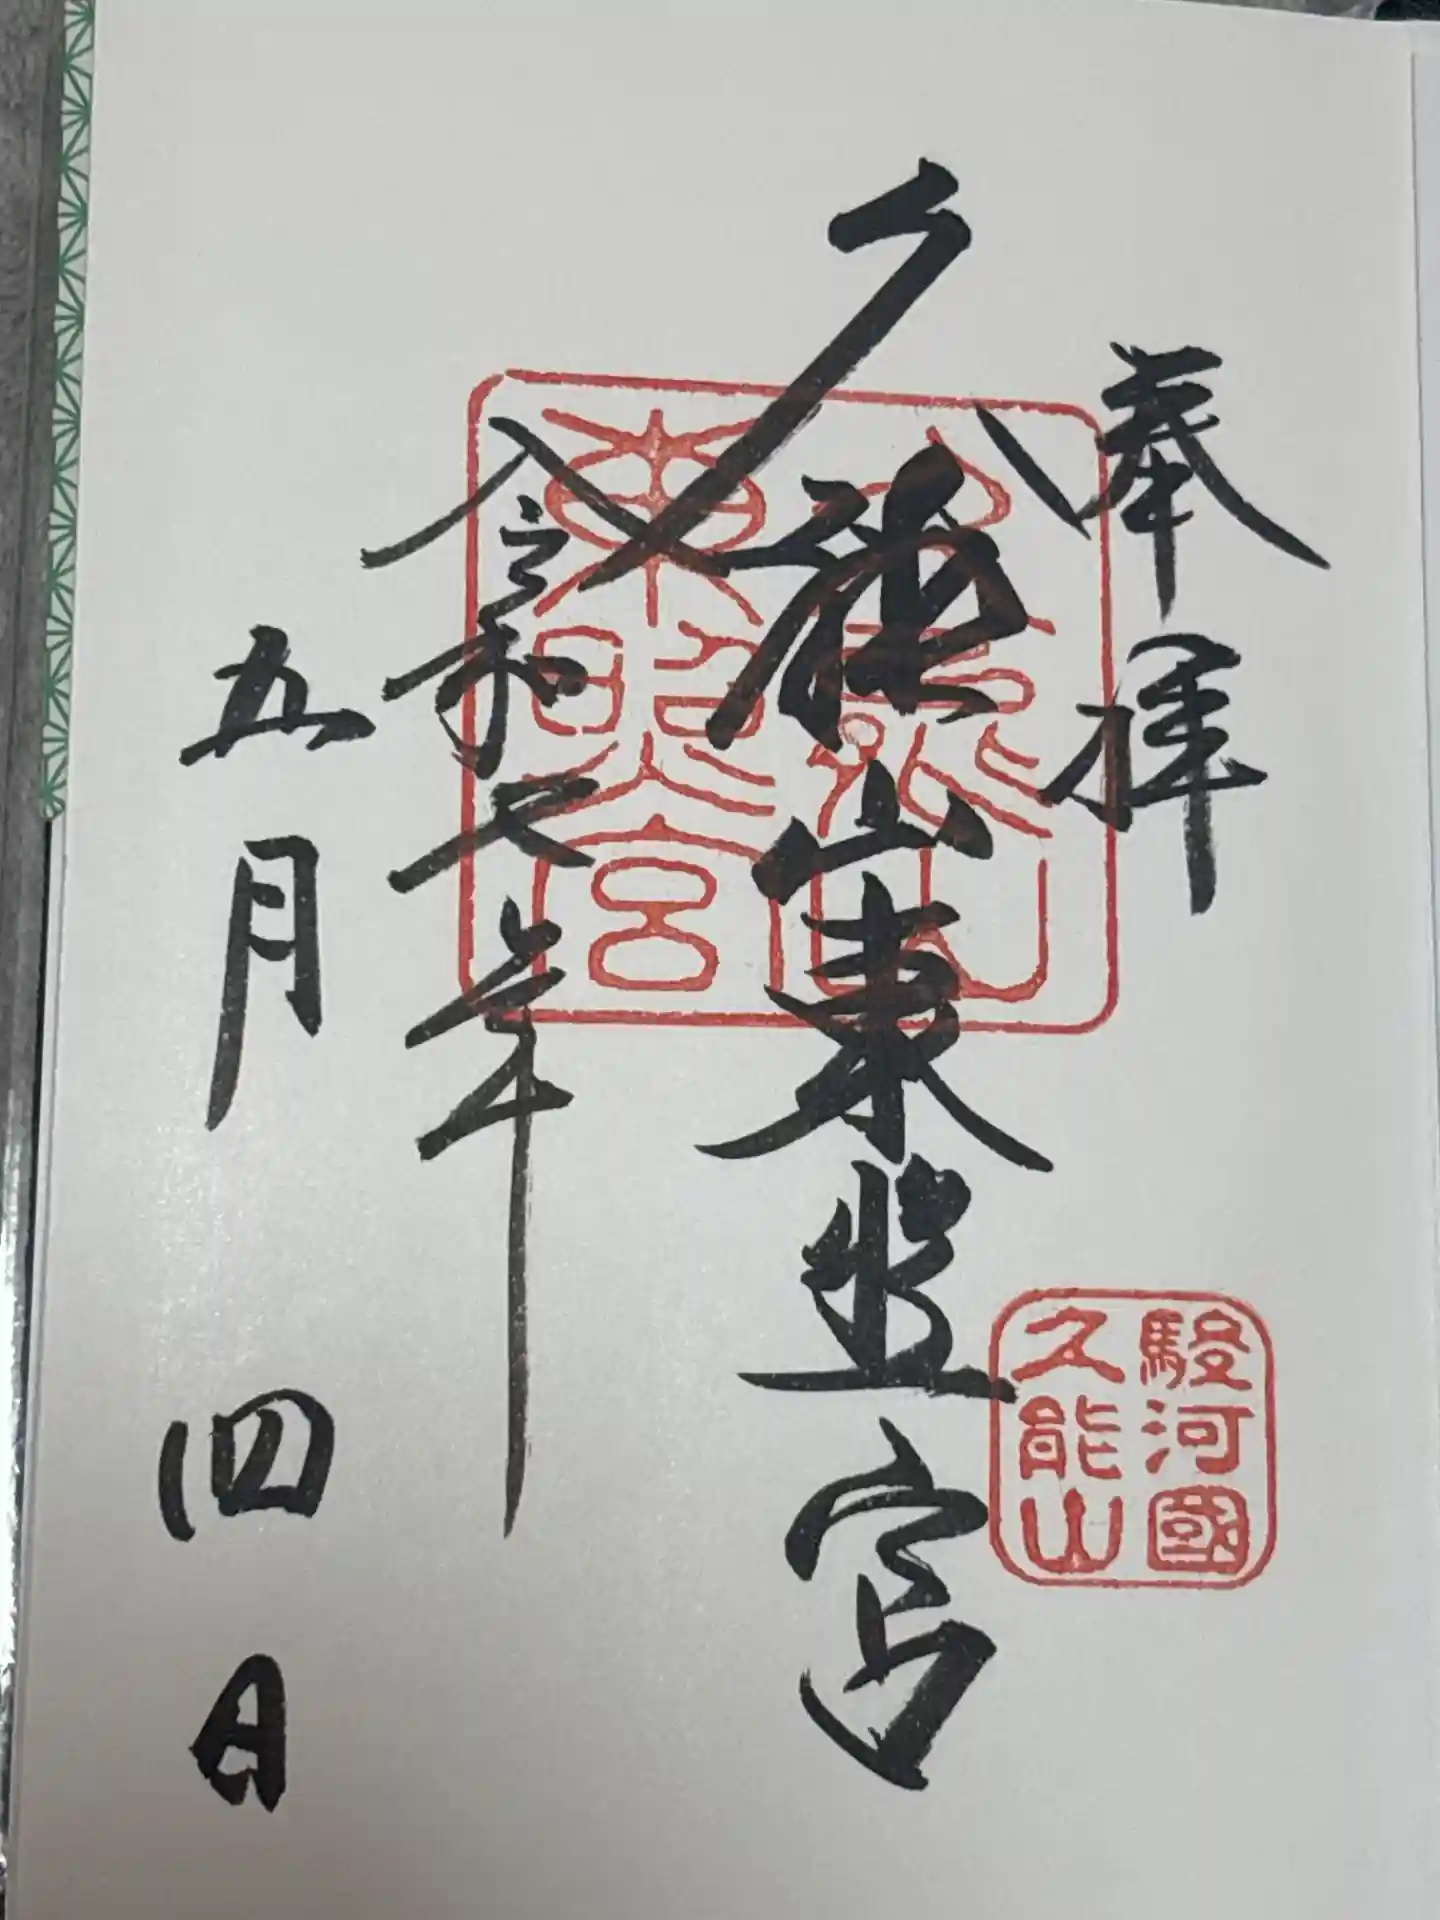 奉拝
久能山東照宮
令和七年
五月四日
久能山
東照宮
駿河國
久能山